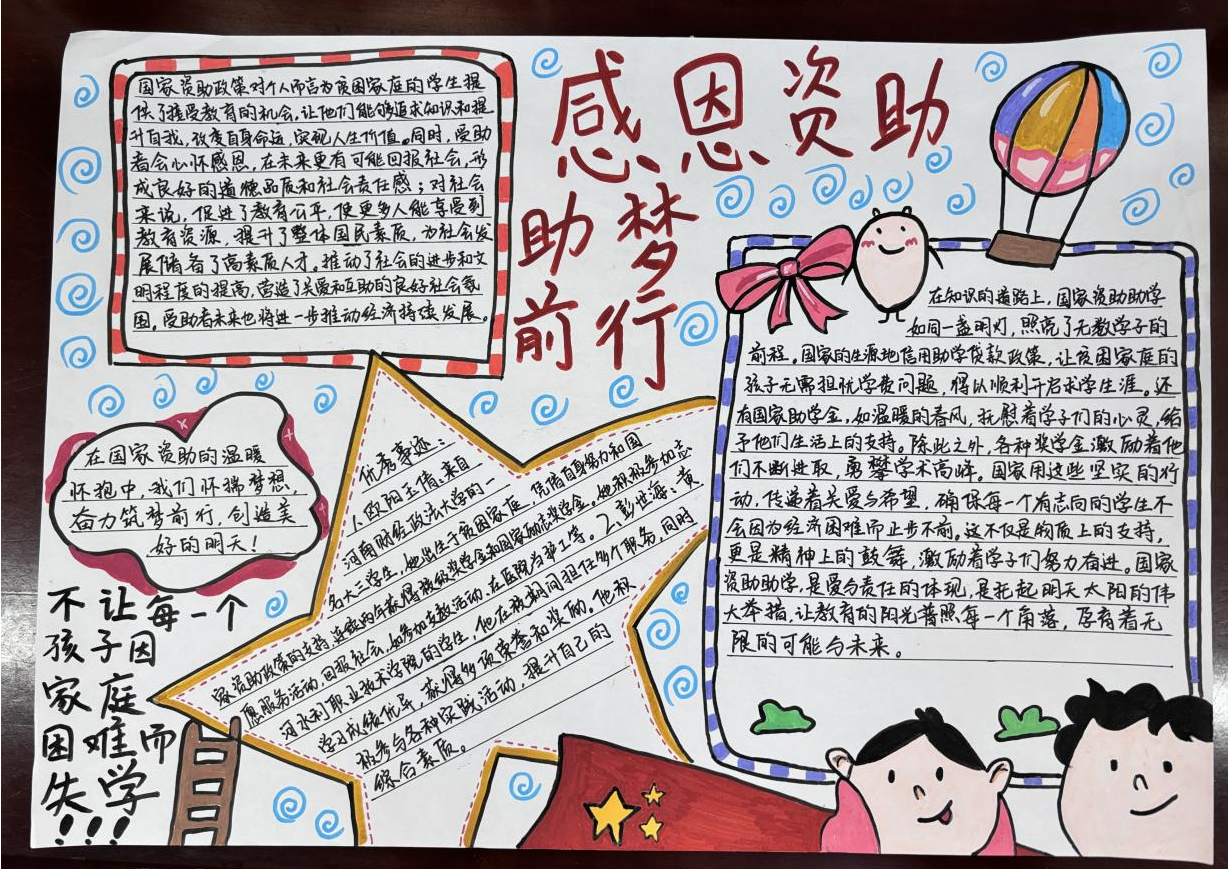 感恩资助
助梦
前行
国家资助政策对个人而言为贫困家庭的学生提
供了接受教育的机会,让他们能够追求知识和提
升自我,改变自身命运,实现人生价值。同时,受助
者会心怀感恩,在未来更有可能回报社会,形
成良好的道德品质和社会责任感;对社会
来说,促进了教育公平,使更多人能享受到
教育资源,提升了整体国民素质,为社会发
展储备了高素质人才。推动了社会的进步和文
明程度的提高,营造了关爱和互助的良好社会氛
围。受助者未来也将进一步推动经济持续发展。
在国家资助的温暖
怀抱中,我们怀揣梦想,
奋力筑梦前行,创造美
好的明天!
不让每一个
孩子因
家庭
困难而
失学
!!!
优秀事迹:
1、欧阳玉倩:来自
河南财经政法大学的一
名大三学生,她出生于贫困家庭,凭借自身努力和国
家资助政策的支持,连续两年获得校级奖学金和国家励志奖学金。她积极参加志
愿服务活动,回报社会,如参加支教活动、在医院为护工等。2、彭世海:黄
河水利职业技术学院的学生,他在校期间担任多个职务,同时
学习成绩优异,获得多项荣誉和奖励。他积
极参与各种实践活动,提升自己的
综合素质。
在知识的道路上,国家资助助学
如同一盏明灯,照亮了无数学子的
前程。国家的生源地信用助学贷款政策,让贫困家庭的
孩子无需担忧学费问题,得以顺利开启求学生涯。还
有国家助学金,如温暖的春风,抚慰着学子们的心灵,给
予他们生活上的支持。除此之外,各种奖学金激励着他
们不断进取,勇攀学术高峰。国家用这些坚实的行
动,传递着关爱与希望,确保每一个有志向的学生不
会因为经济困难而止步不前。这不仅是物质上的支持,
更是精神上的鼓舞,激励着学子们努力奋进。国家
资助助学,是爱与责任的体现,是托起明天太阳的伟
大举措,让教育的阳光普照每一个角落,孕育着无
限的可能与未来。